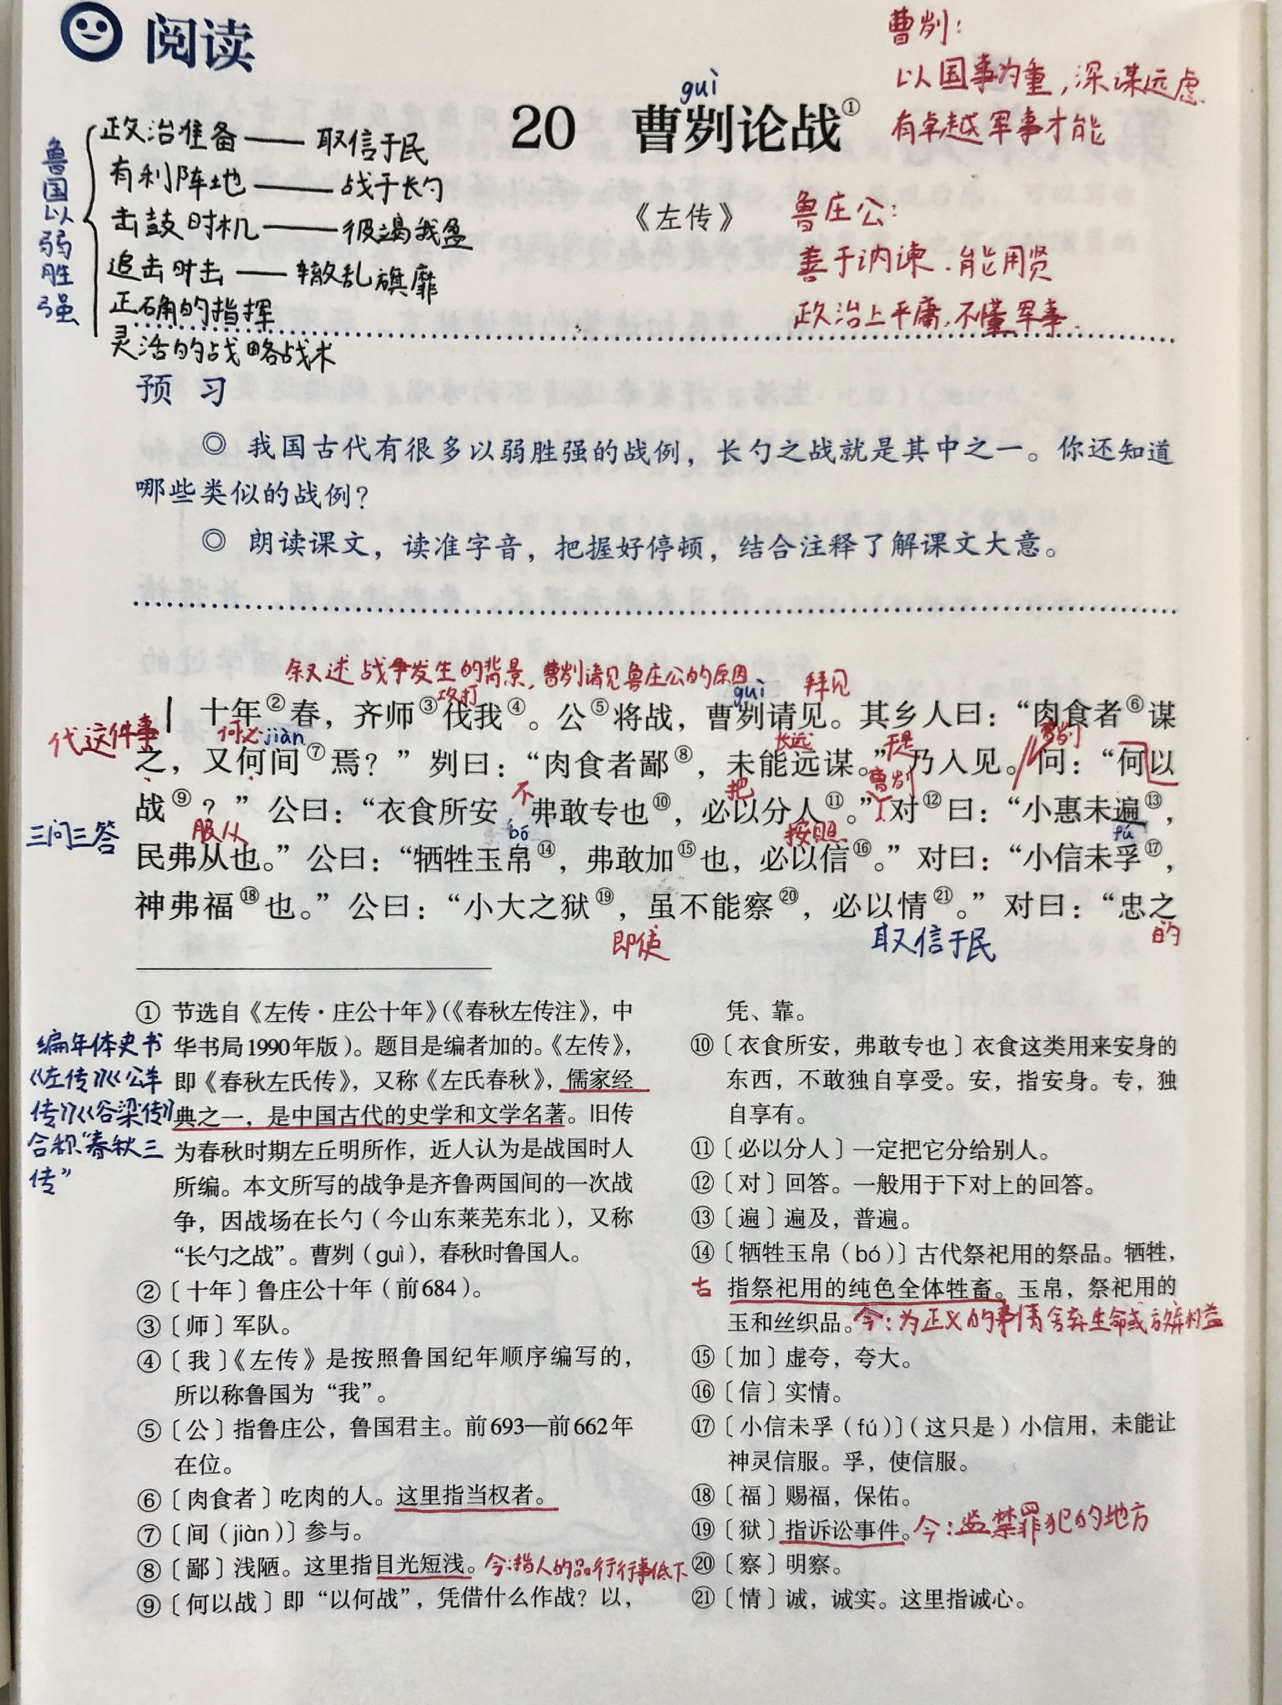 阅读
曹刿：
以国事为重，深谋远虑.
有卓越军事才能
guì
20 曹刿论战①
《左传》
鲁庄公：
善于讷谏.能用贤
政治上平庸,不懂军事.
鲁国以弱胜强
政治准备——取信于民
有利阵地——战于长勺
击鼓时机——彼竭我盈
追击时击——辙乱旗靡
正确的指挥
灵活的战略战术
预 习
◎ 我国古代有很多以弱胜强的战例，长勺之战就是其中之一。你还知道
哪些类似的战例？
◎ 朗读课文，读准字音，把握好停顿，结合注释了解课文大意。
叙述战争发生的背景,曹刿请见鲁庄公的原因
攻打 guì 拜见
十年②春，齐师③伐我④。公⑤将战，曹刿请见。其乡人曰：“肉食者⑥谋
代这件事 何必 jiàn 长远 于是 曹刿
之，又何间⑦焉？”刿曰：“肉食者鄙⑧，未能远谋。”乃入见。问：“何以
不 把 曹刿
战⑨？”公曰：“衣食所安，弗敢专也⑩，必以分人⑪。”对⑫曰：“小惠未遍⑬，
三问三答 服从 bó 按照 fú
民弗从也。”公曰：“牺牲玉帛⑭，弗敢加⑮也，必以信⑯。”对曰：“小信未孚⑰，
神弗福⑱也。”公曰：“小大之狱⑲，虽不能察⑳，必以情㉑。”对曰：“忠之
即使 取信于民 的
① 节选自《左传·庄公十年》（《春秋左传注》，中
华书局1990年版）。题目是编者加的。《左传》，
即《春秋左氏传》，又称《左氏春秋》，儒家经
典之一，是中国古代的史学和文学名著。旧传
为春秋时期左丘明所作，近人认为是战国时人
所编。本文所写的战争是齐鲁两国间的一次战
争，因战场在长勺（今山东莱芜东北），又称
“长勺之战”。曹刿（guì），春秋时鲁国人。
编年体史书
《左传》《公羊
传》《谷梁传》
合称“春秋三
传”
②〔十年〕鲁庄公十年（前684）。
③〔师〕军队。
④〔我〕《左传》是按照鲁国纪年顺序编写的，
所以称鲁国为“我”。
⑤〔公〕指鲁庄公，鲁国君主。前693—前662年
在位。
⑥〔肉食者〕吃肉的人。这里指当权者。
⑦〔间（jiàn）〕参与。
⑧〔鄙〕浅陋。这里指目光短浅。今:指人的品行行事低下
⑨〔何以战〕即“以何战”，凭借什么作战？以，
凭、靠。
⑩〔衣食所安，弗敢专也〕衣食这类用来安身的
东西，不敢独自享受。安，指安身。专，独
自享有。
⑪〔必以分人〕一定把它分给别人。
⑫〔对〕回答。一般用于下对上的回答。
⑬〔遍〕遍及，普遍。
⑭〔牺牲玉帛（bó）〕古代祭祀用的祭品。牺牲，
古 指祭祀用的纯色全体牲畜。玉帛，祭祀用的
玉和丝织品。今：为正义的事情舍弃生命或放弃利益
⑮〔加〕虚夸，夸大。
⑯〔信〕实情。
⑰〔小信未孚（fú）〕（这只是）小信用，未能让
神灵信服。孚，使信服。
⑱〔福〕赐福，保佑。
⑲〔狱〕指诉讼事件。今：监禁罪犯的地方
⑳〔察〕明察。
㉑〔情〕诚，诚实。这里指诚心。